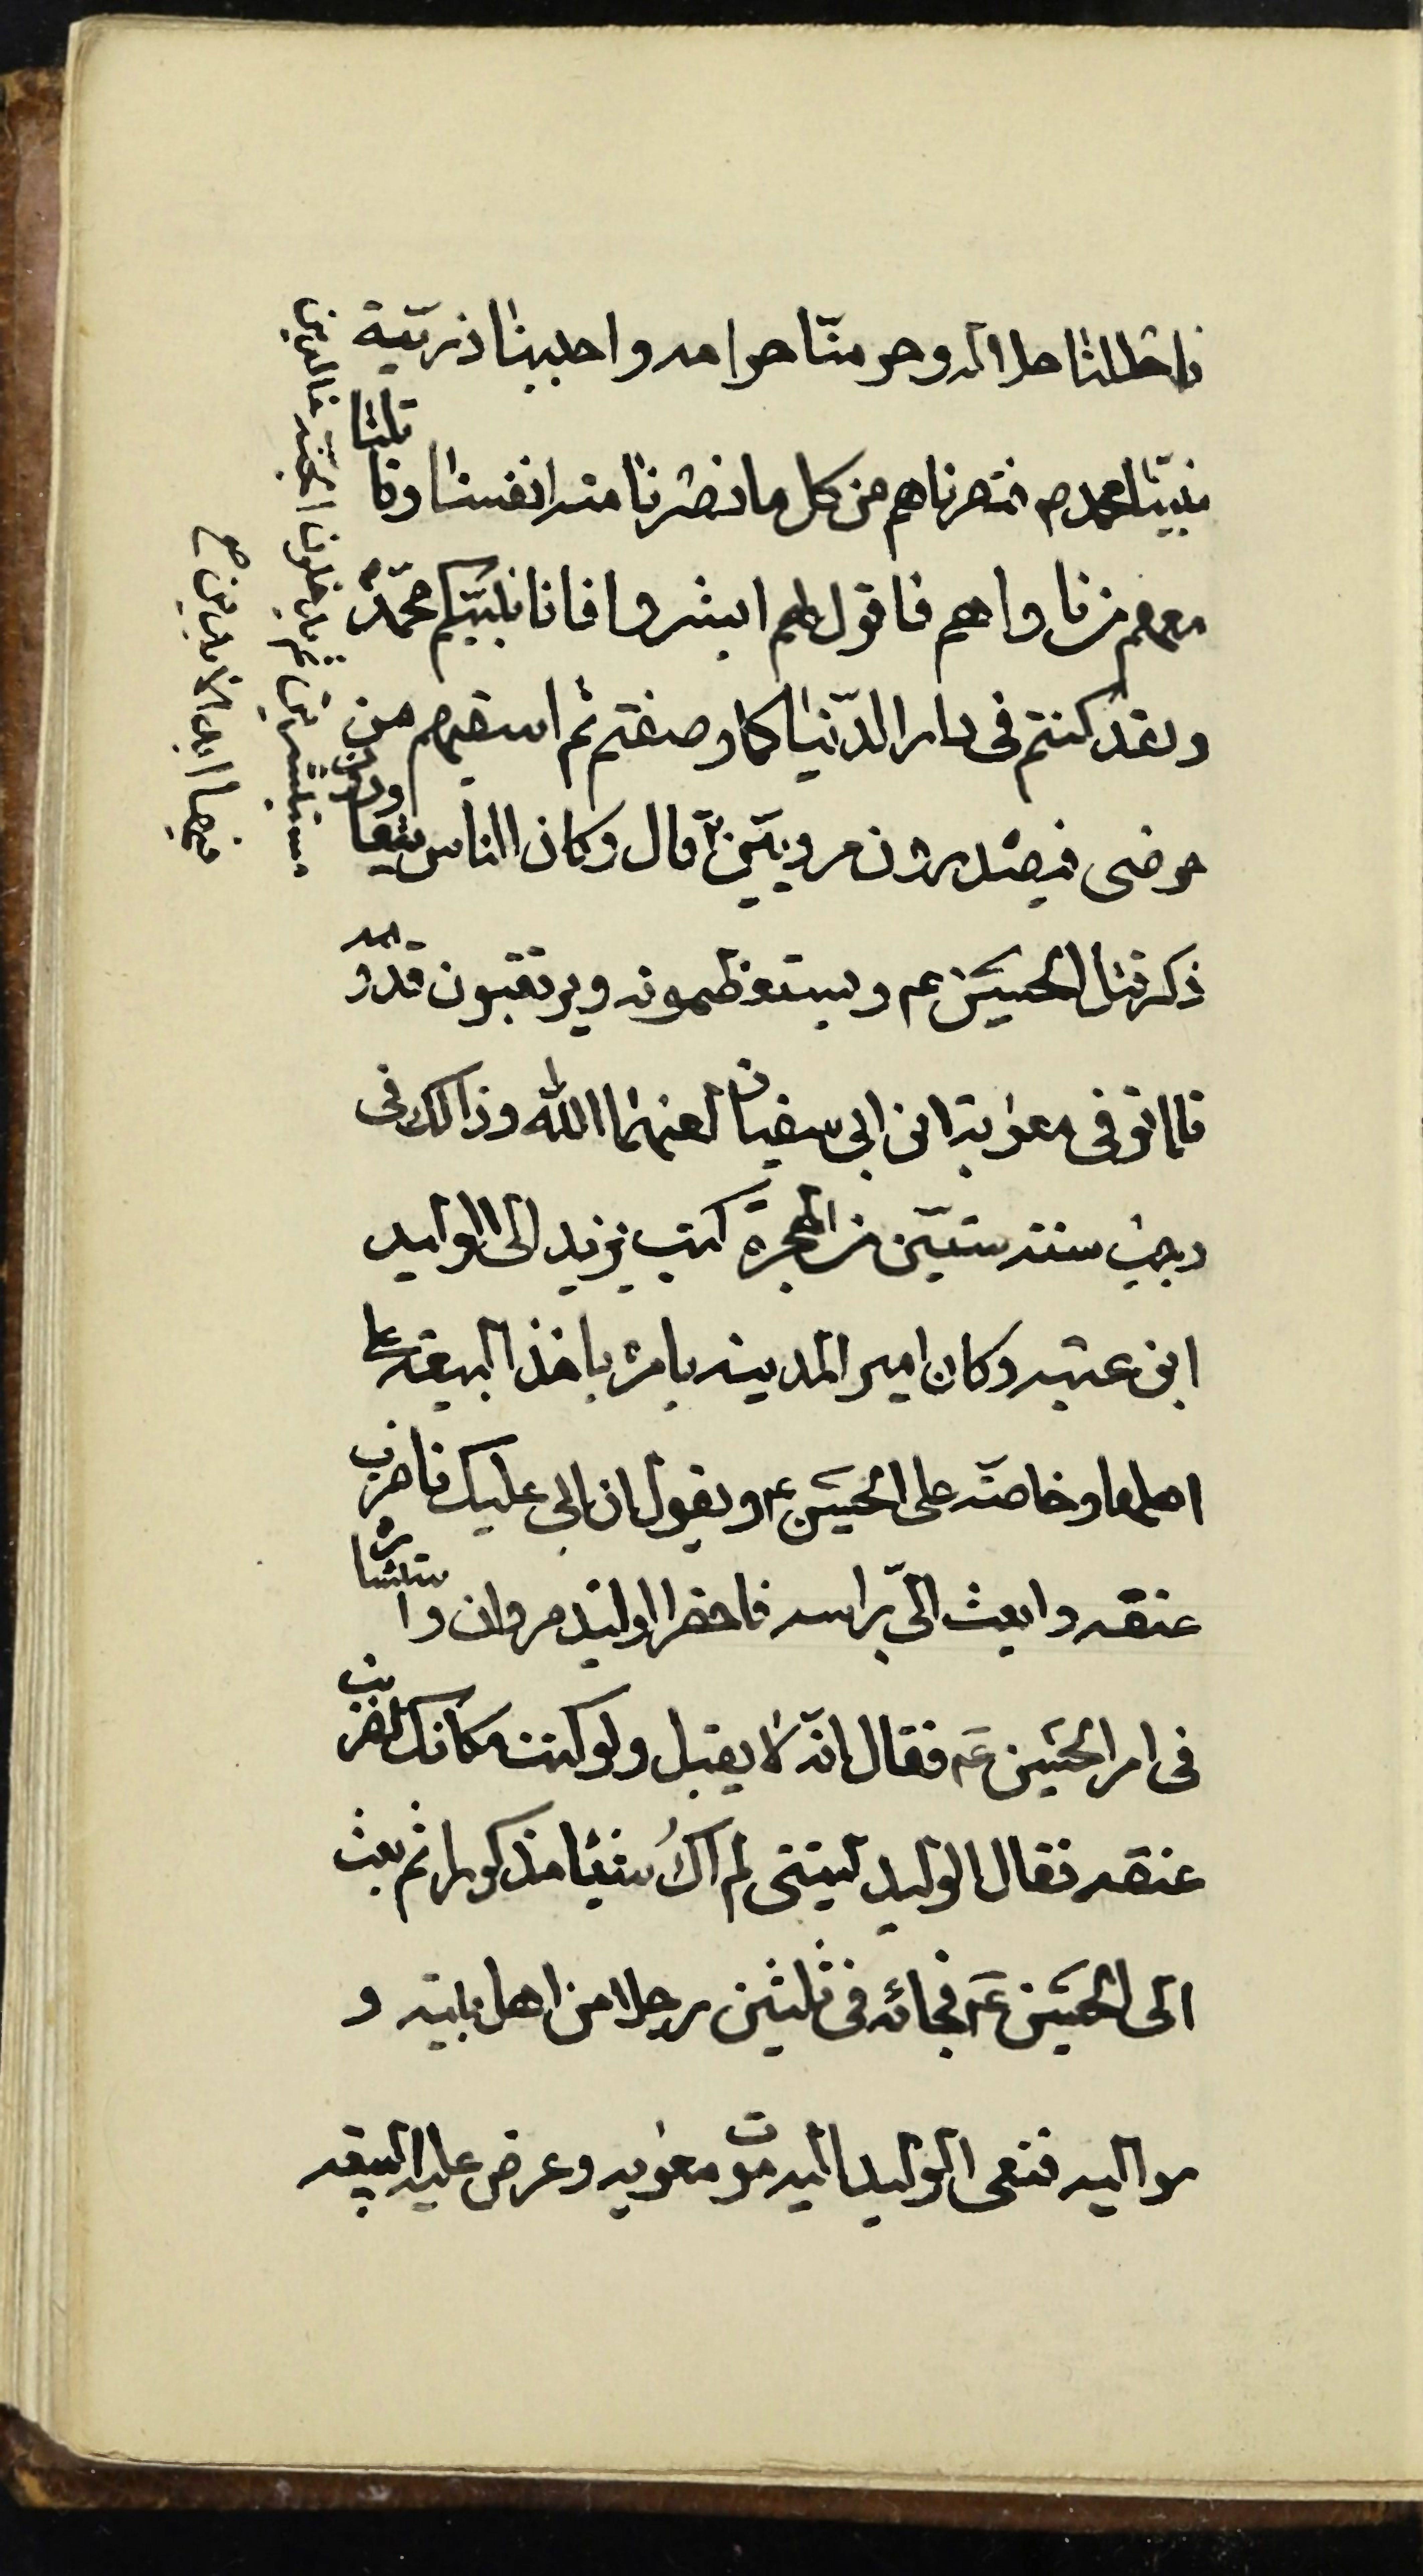 فاحللنا حلاله وحرمنّا حرامه واحببنا ذريّة
نبيّنا محمد ص فنصرناهم من كل ما نصرنا منه انفسنا وقاتلنا
معهم من ناواهم فاقول لهم ابشروا فانا نبيّكم محمّد ص
ولقد كنتم فى دار الدّنيا كما وصفتم ثم اسقيهم من
حوضى فيصدرون مرويّين قال وكان الناس يتعاودون
ذكر قتل الحسين ع م ويستعظمونه ويرتقبون قدومه
فلما توفى معوٰية ابن ابى سفيان لعنهما الله وذالك فى
رجب سنته ستّين من الهجرة كتب يزيد الى الوليد
ابن عتبه وكان امير المدينه يامره باخذ البيعته على
اهلها وخاصّه على الحسين ع م ويقول ان ابى عليك فاضرب
عنقه وابعث الىّ براسه فاحضر الوليد مروان واستشاره
فى امر الحسين ع م فقال انّه لا يقبل ولو كنت مكانك لضربت
عنقه فقال الوليد ليتنى لم اكُ شيئا مذكورا ثم بعث
الى الحسين ع م فجائه فى ثلثين رجلا من اهل بيته و
مواليه فنعى الوليد اليه موت معوٰيه وعرض عليه البيعه
مستبشرين ثم يدخلون الجنّه خالدين
فيها ابد الابدين صح